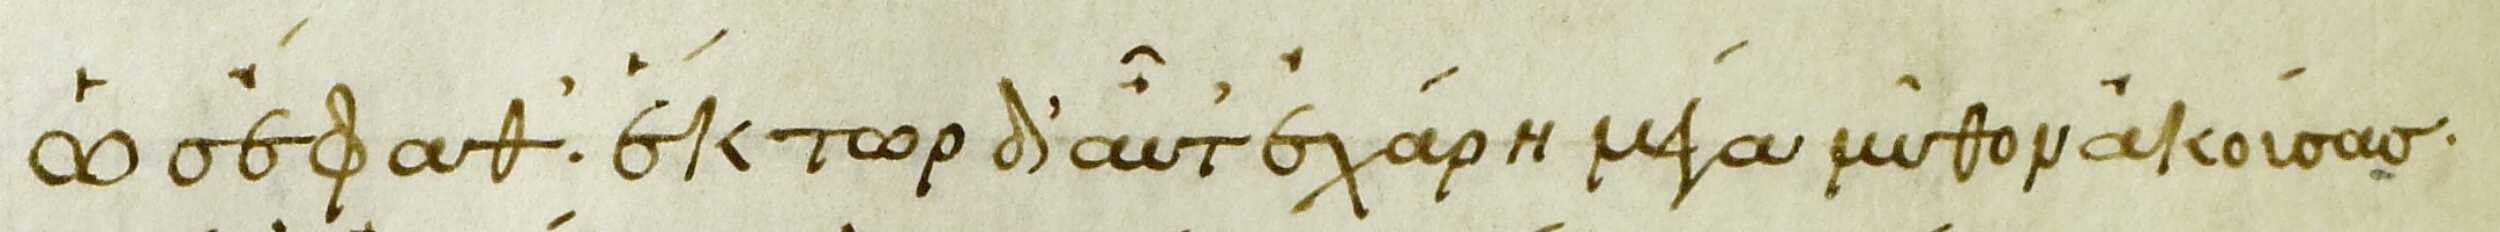 ὡσ ἔφαθ'· ἕκτωρ δ' αὖτ' ἐχάρη μέγα μῦθον ἀκούσασ·